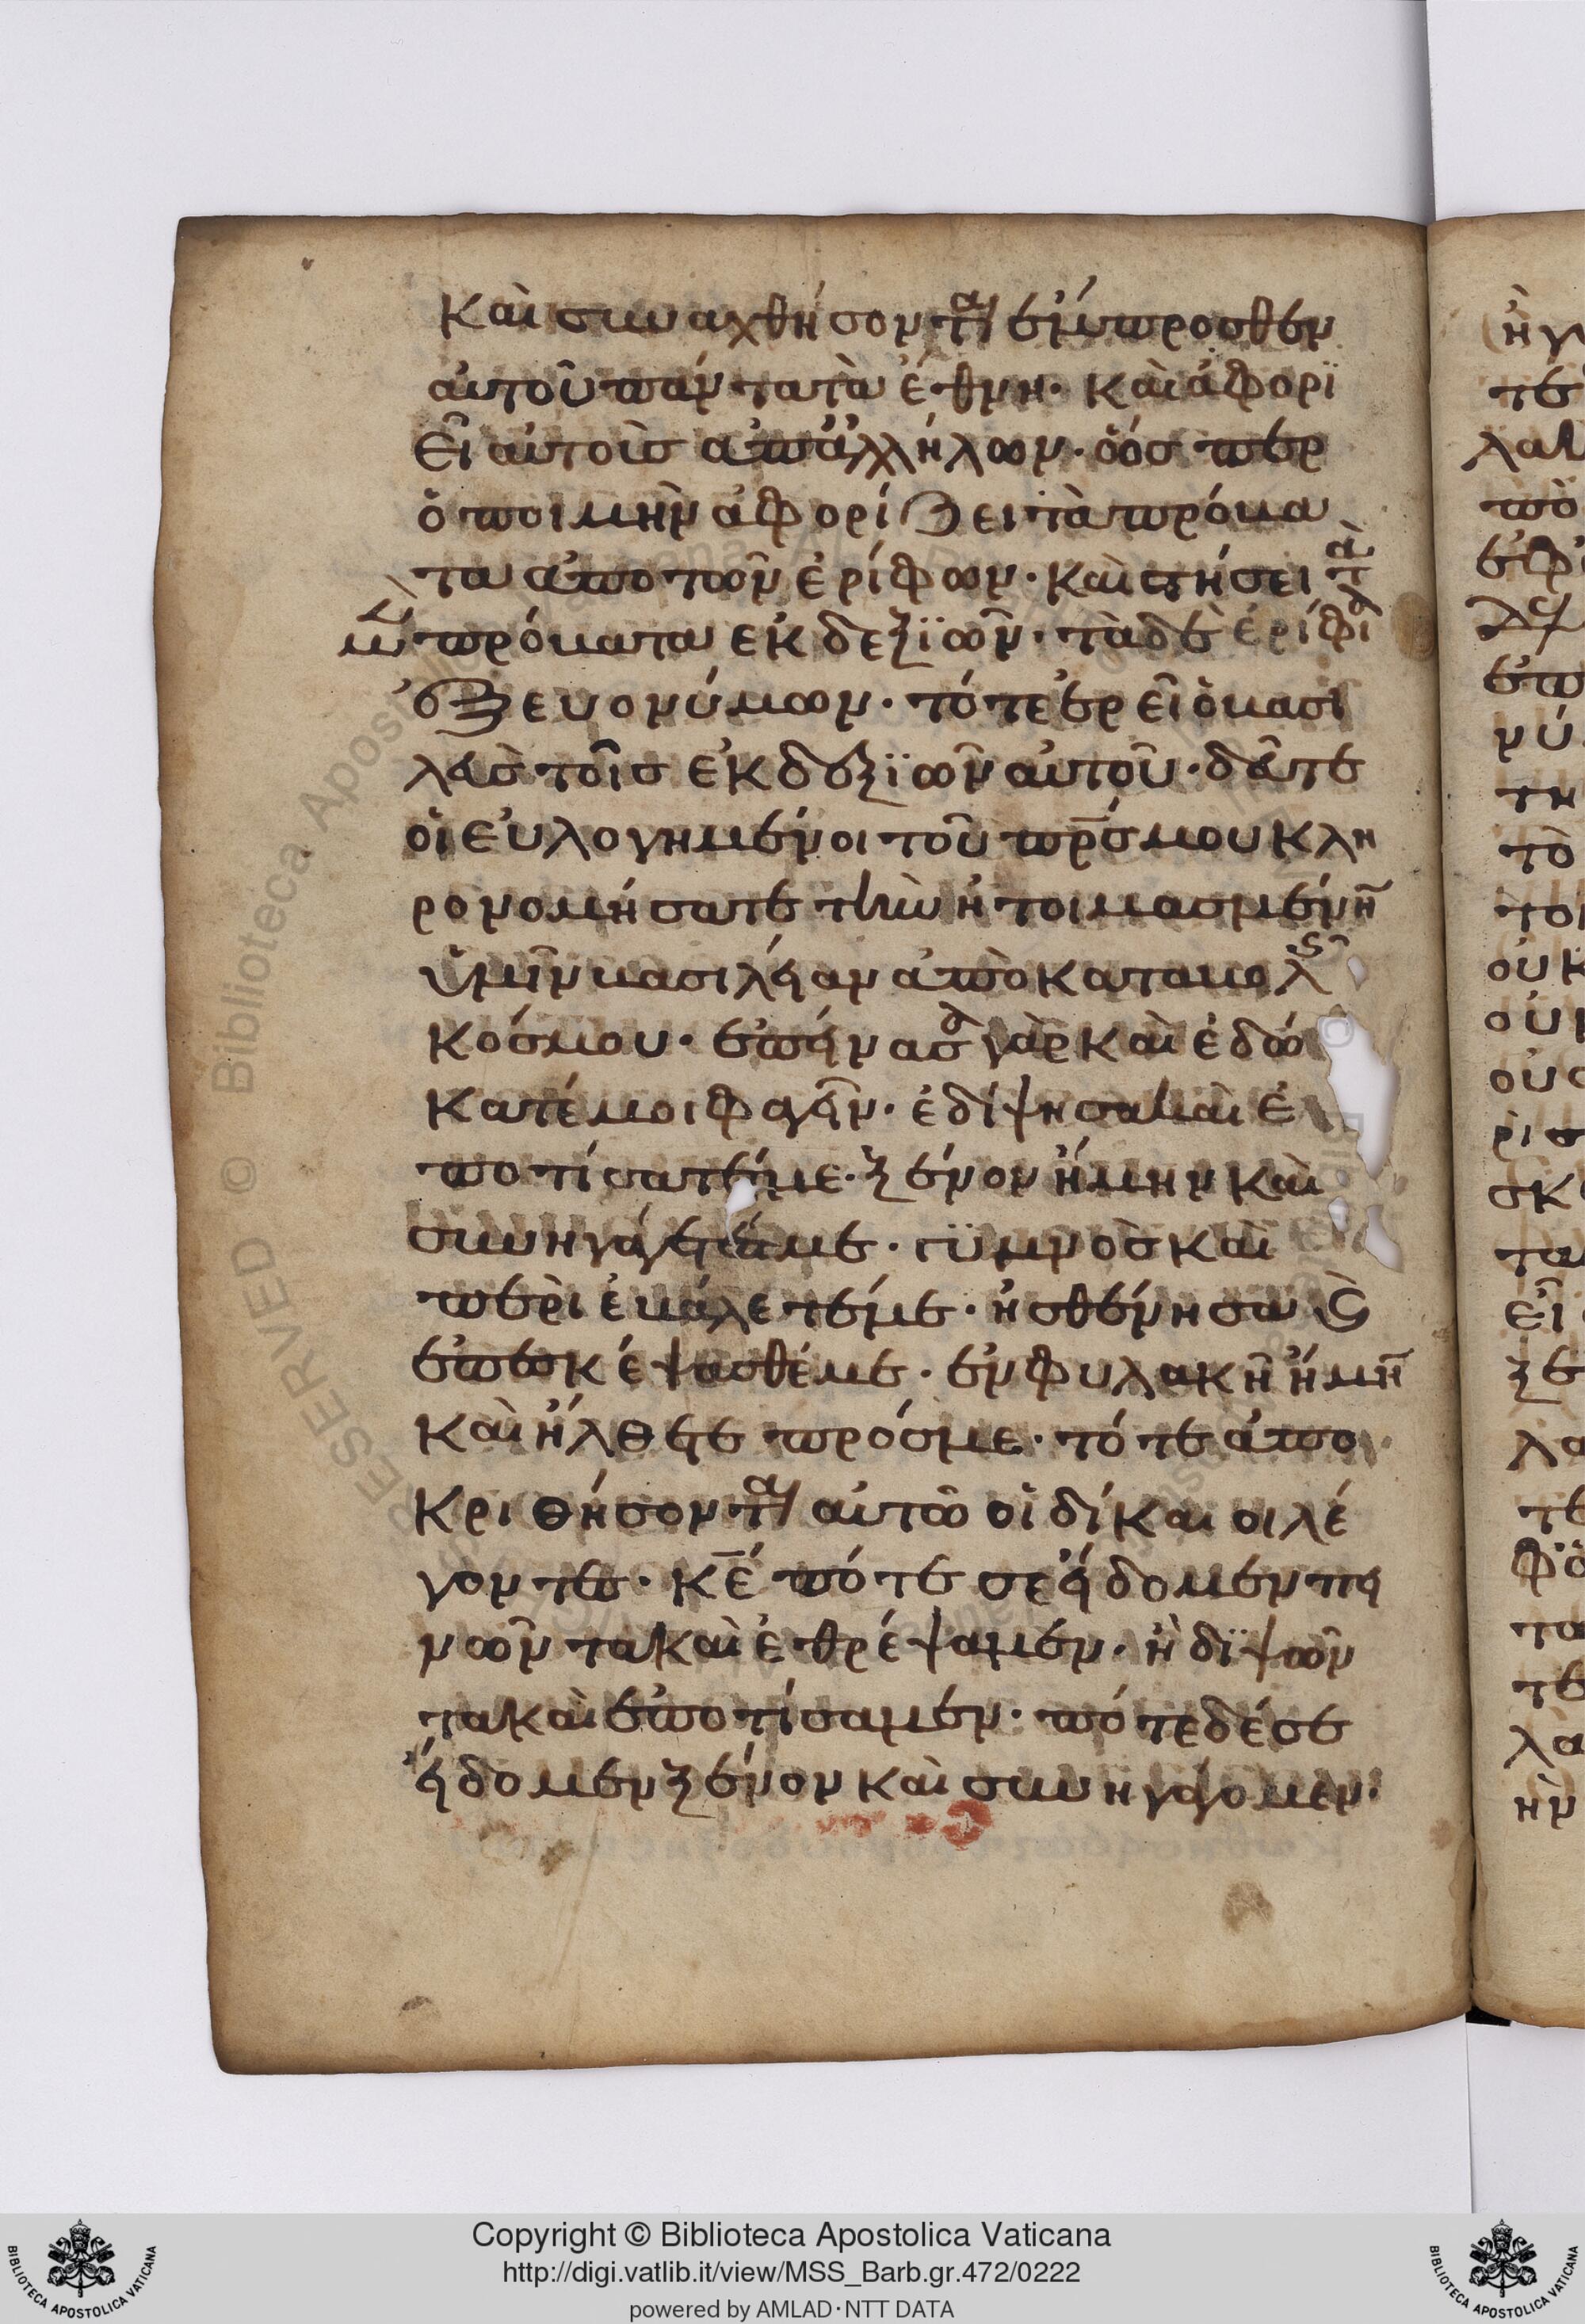 καὶ συναχθήσονται ἔμπροσθεν
αὐτοῦ πάντα τὰ ἔθνη· καὶ ἀφορϊ
εῖ αὐτοὺς ἀπ' ἀλλήλων· ὥσπερ
ὁ ποιμὴν ἀφορίζει τὰ πρόβα
τα ἀπο τῶν ἐρίφων· καὶ στήσει τὰ
μὲν πρόβατα ἐκ δεξϊῶν· τὰ δὲ ἐρίφια
ἐξ ευονύμων· τότε ἐρεῖ ὁ βασι
λεὺς τοῖς ἐκ δεξϊῶν αὐτοῦ· δεῦτε
οἱ εὐλογημένοι τοῦ πρσ μου κλη
ρονομήσατε τὴν ἡτοιμασμένην
ὑμῖν βασιλείαν ἀπὸ καταβολῆς
κόσμου· ἐπείνασα γὰρ καὶ ἐδώ
κατέ μοι φαγεῖν· ἐδίψησα καὶ ἐ
ποτίσατέ με· ξένον ἤμην καὶ
συνηγάγετέ με· γϋμνὸς καὶ
περιεβάλετέ με· ἠσθένησα καὶ
ἐπεσκέψασθέ με· ἐν φυλακῆ ἤμην
καὶ ἤλθετε πρός με· τότε ἀπο
κριθήσονται αὐτῶ οἱ δίκαιοι λέ
γοντες· κε πότε σε εἴδομεν πει
νῶντα καὶ ἐθρέψαμεν· ἢ δϊψῶν
τα καὶ ἐποτίσαμεν· πότε δέ σε
εἴδομεν ξένον καὶ συνηγάγομεν·
Copyright © Biblioteca Apostolica Vaticana
http://digi.vatlib.it/view/MSS_Barb.gr.472/0222
powered by AMLAD·NTT DATA